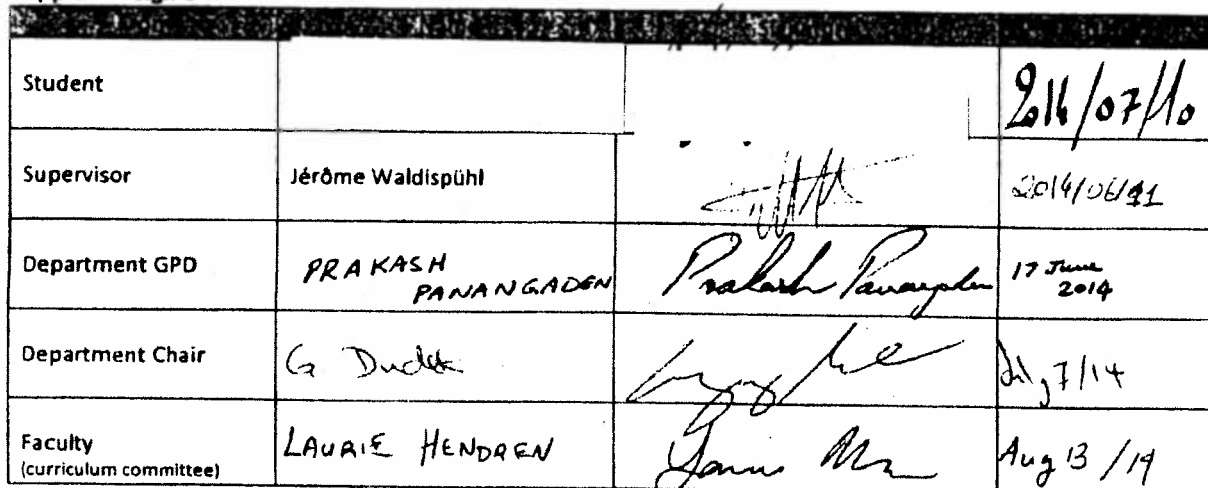 Student 2014/07/10
Supervisor Jérôme Waldispühl 2014/06/11
Department GPD PRAKASH PANANGADEN Prakash Panangaden 17 June 2014
Department Chair G Dudek July 7/14
Faculty LAURIE HENDREN Aug 13 /14
(curriculum committee)